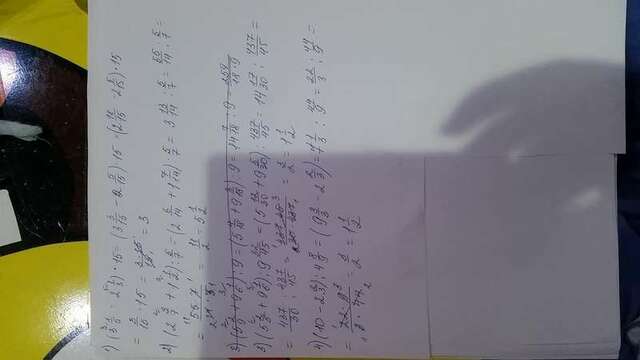 1) (3 1/5 - 2 1/3) · 15 = (3 3/15 - 2 5/15) · 15 = (2 18/15 - 2 5/15) · 15
= · 15 = = 3
2) (2 3/7 + 1 1/2) : 5/7 = (2 6/14 + 1 7/14) : 5/7 = 3 13/14 : 5/7 = 55/14 : 5/7 =
= 55 · 7 / 14 · 5 = 11/2 = 5 1/2
: 9 = : 9 = 14 7/18 : 9 = 259/18 · 9
3) : 9 32/45 = (5 12/30 + 9 5/30) : 437/45 = 14 17/30 : 437/45 =
= 437/30 : 437/45 = 437 · 45 / 30 · 437 = 3/2 = 1 1/2
4) (10 - 2 2/3) : 4 8/9 = (9 3/3 - 2 2/3) = 7 1/3 : 44/9 = 22/3 : 44/9 =
= 22 · 9 / 3 · 44 = 3/2 = 1 1/2